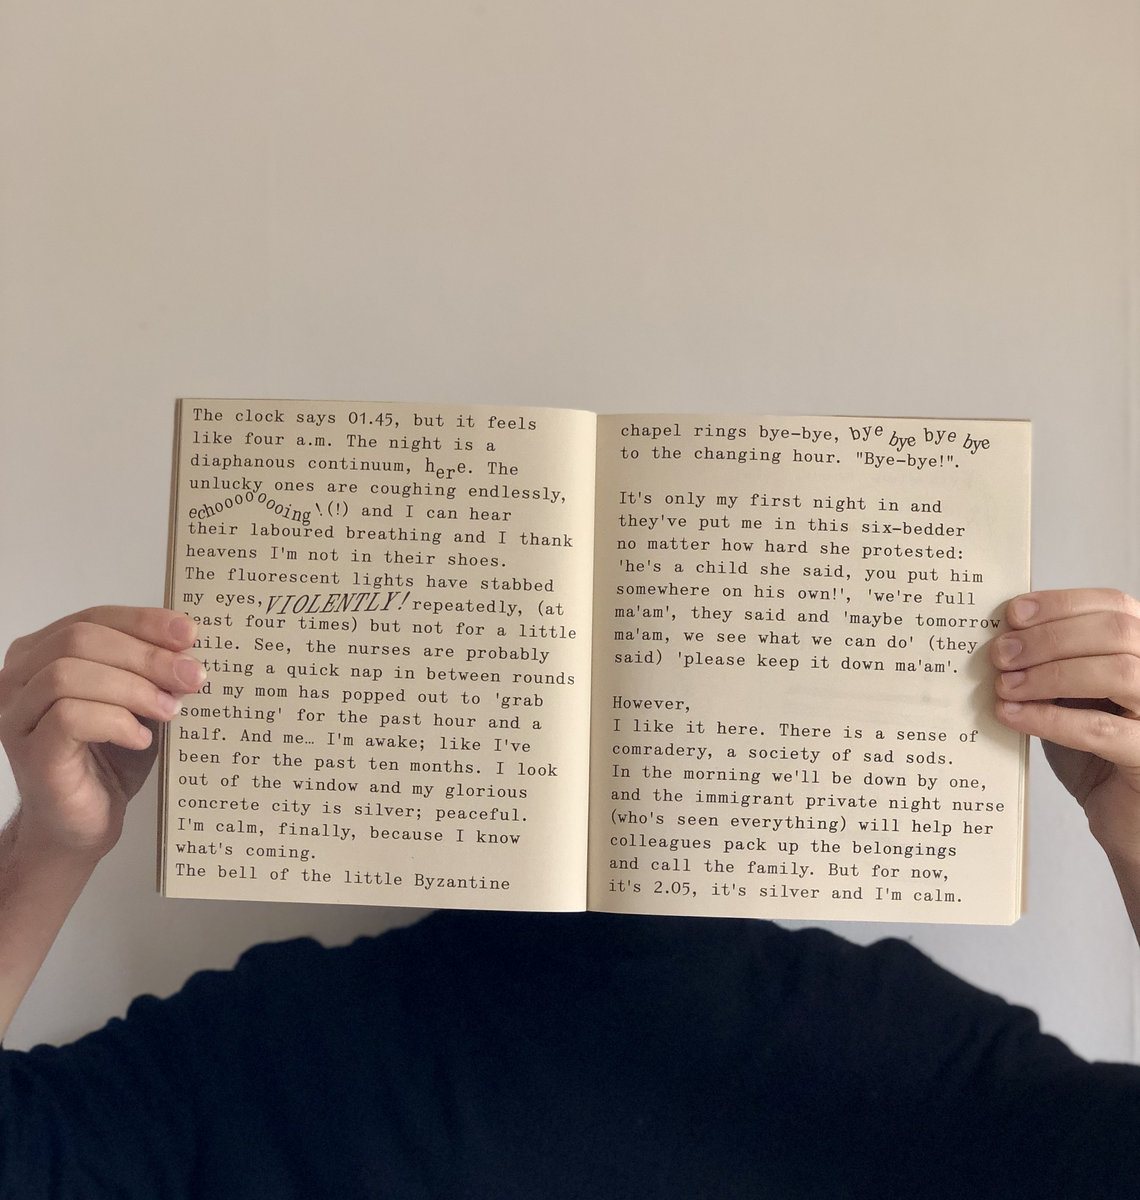 The clock says 01.45, but it feels
like four a.m. The night is a
diaphanous continuum, here. The
unlucky ones are coughing endlessly,
echoooooooooing\(!) and I can hear
their laboured breathing and I thank
heavens I'm not in their shoes.
The fluorescent lights have stabbed
my eyes, VIOLENTLY! repeatedly, (at
least four times) but not for a little
while. See, the nurses are probably
getting a quick nap in between rounds
and my mom has popped out to 'grab
something' for the past hour and a
half. And me… I'm awake; like I've
been for the past ten months. I look
out of the window and my glorious
concrete city is silver; peaceful.
I'm calm, finally, because I know
what's coming.
The bell of the little Byzantine
chapel rings bye-bye, bye bye bye bye
to the changing hour. "Bye-bye!".
It's only my first night in and
they've put me in this six-bedder
no matter how hard she protested:
'he's a child she said, you put him
somewhere on his own!', 'we're full
ma'am', they said and 'maybe tomorrow
ma'am, we see what we can do' (they
said) 'please keep it down ma'am'.
However,
I like it here. There is a sense of
comradery, a society of sad sods.
In the morning we'll be down by one,
and the immigrant private night nurse
(who's seen everything) will help her
colleagues pack up the belongings
and call the family. But for now,
it's 2.05, it's silver and I'm calm.